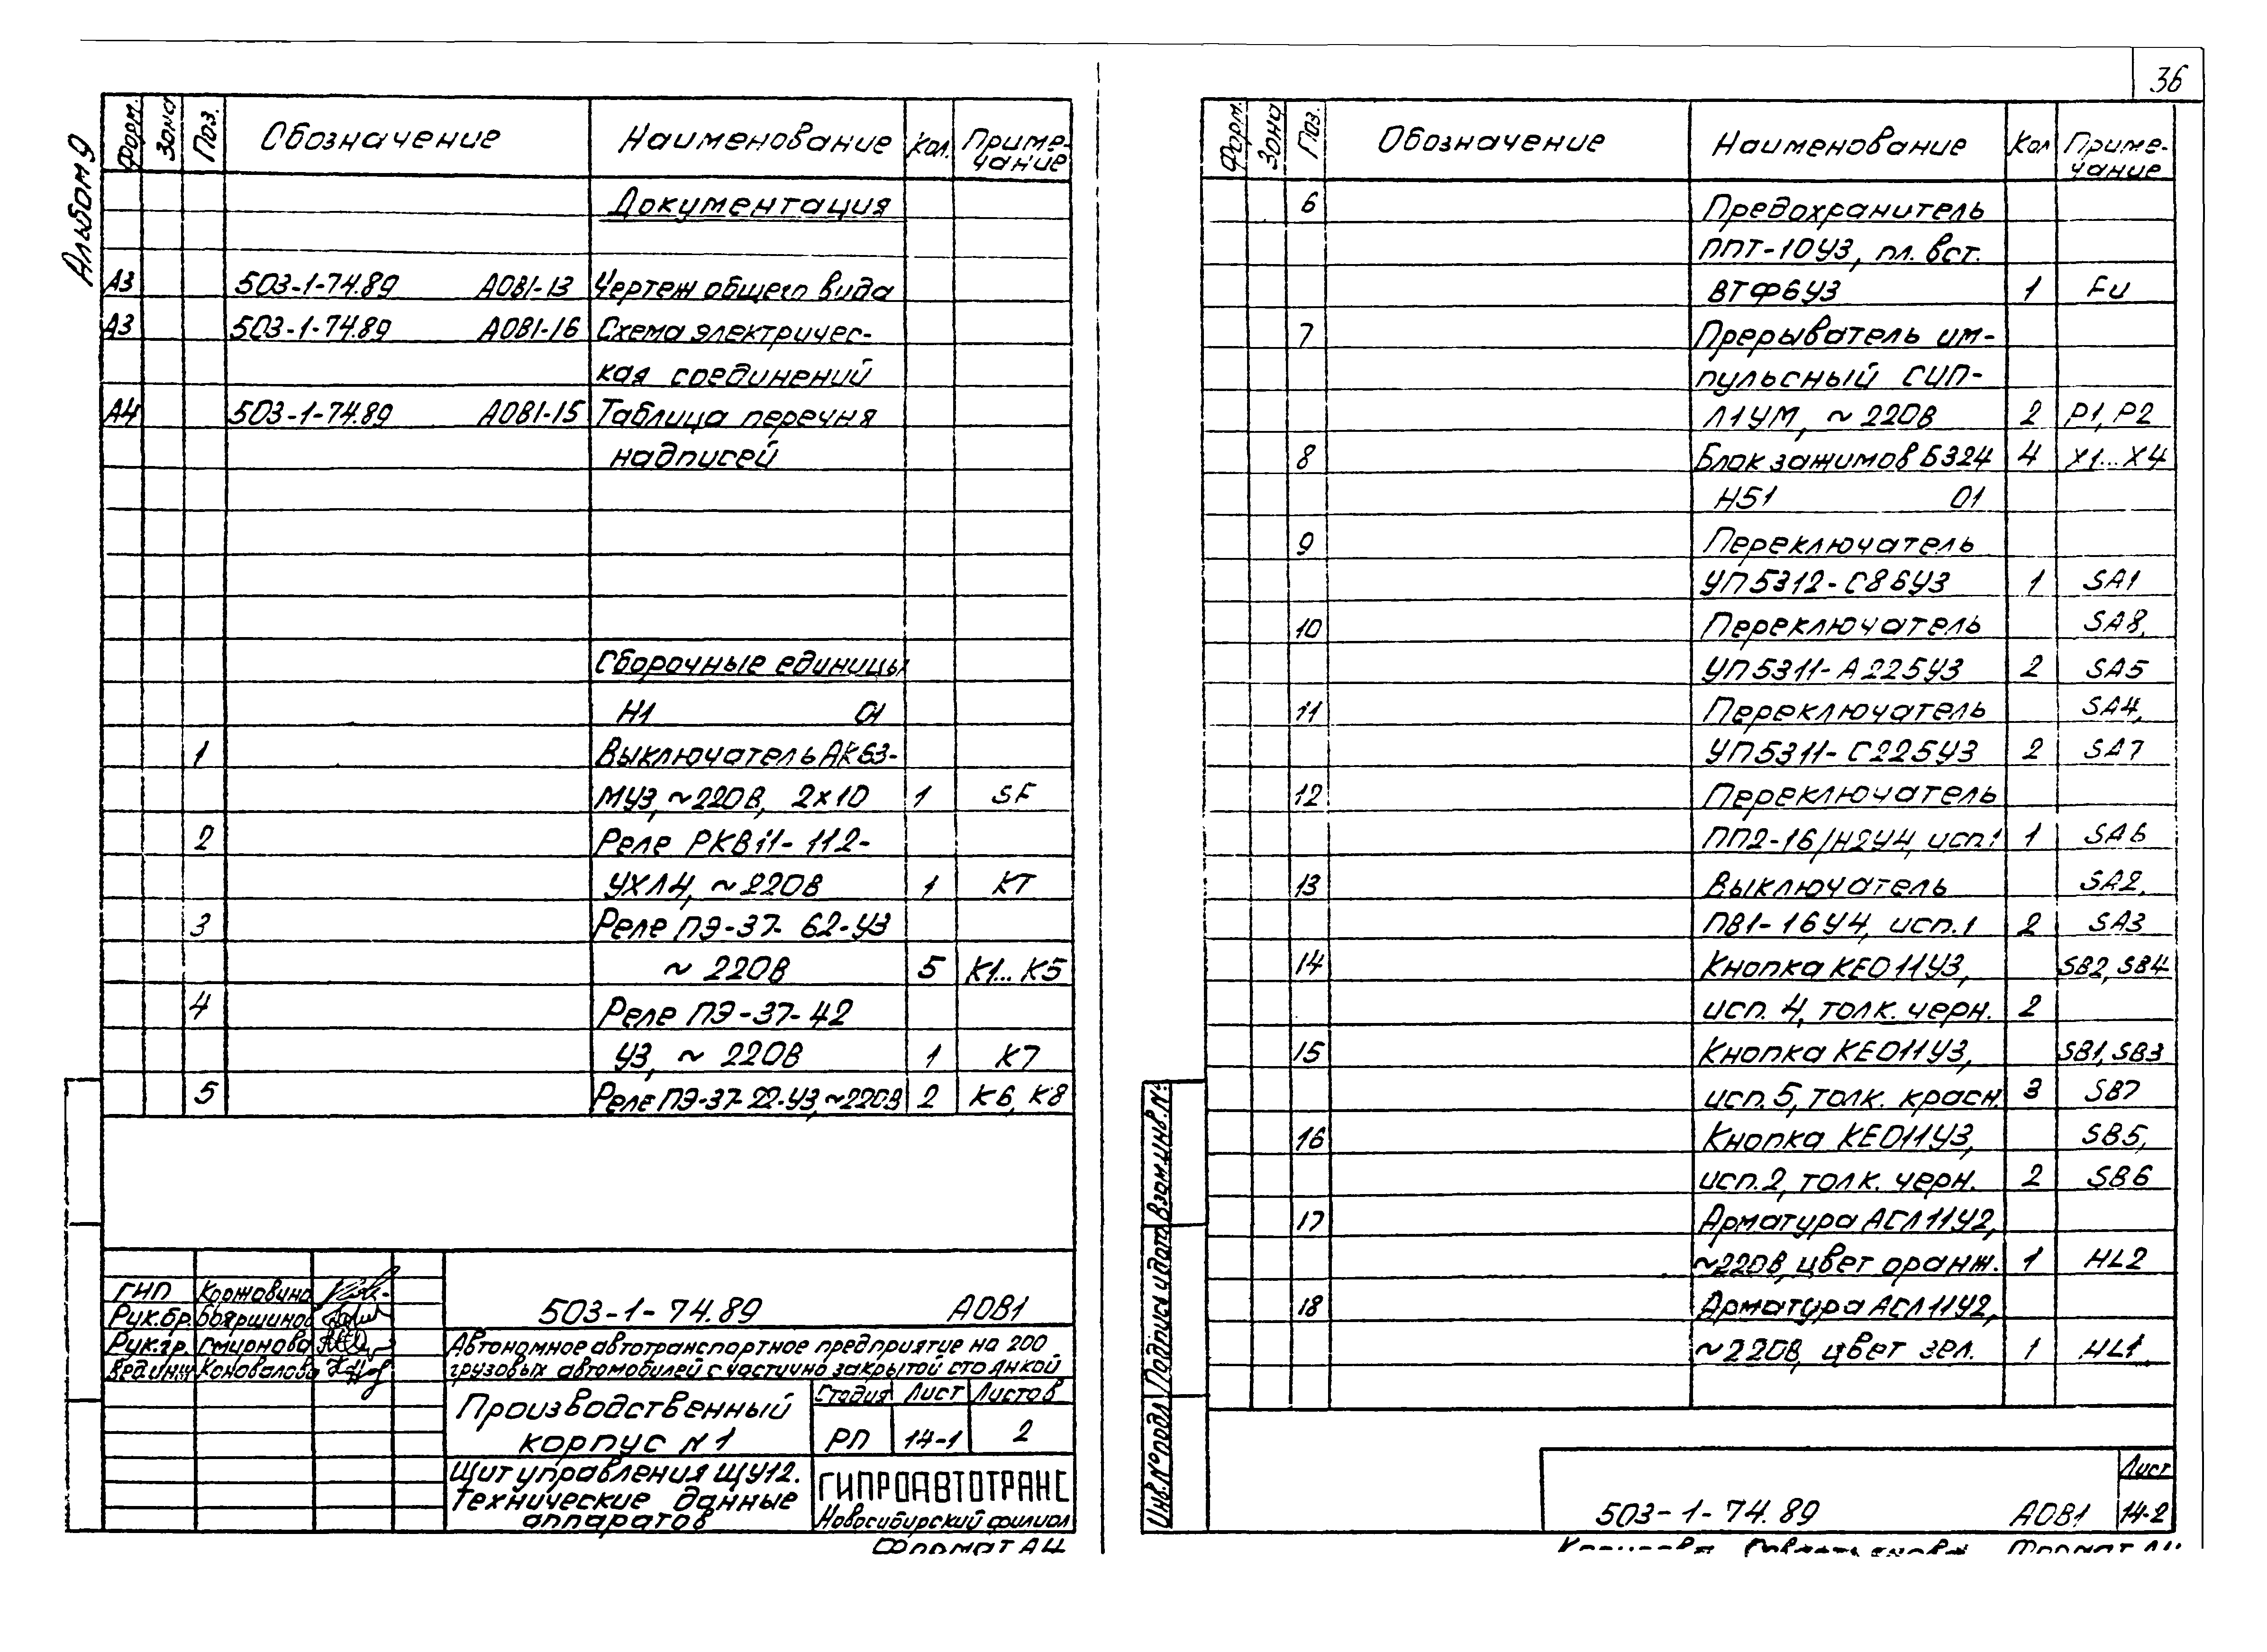 36
Альбом 9
Форм. Зона Поз. Обозначение Наименование Кол. Приме-
чание
Документация
А3 503-1-74.89 АОВ1-13 Чертеж общего вида
А3 503-1-74.89 АОВ1-16 Схема электричес-
кая соединений
А4 503-1-74.89 АОВ1-15 Таблица перечня
надписей
Сборочные единицы
Н1 01
1 Выключатель АК63-
МУ3, ~220В, 2х10 1 SF
2 Реле РКВ11-112-
УХЛ4, ~220В 1 КТ
3 Реле ПЭ-37-62-У3
~ 220В 5 К1...К5
4 Реле ПЭ-37-42
У3, ~ 220В 1 К7
5 Реле ПЭ-37-22-У3, ~220В 2 К6, К8
ГИП Коржавина
Рук.бр. Бояршинов
Рук.гр. Смирнова
Вед.инж Коновалова
503-1-74.89 АОВ1
Автономное автотранспортное предприятие на 200
грузовых автомобилей с частично закрытой стоянкой
Производственный
корпус N1
Стадия Лист Листов
РП 14-1 2
Щит управления ЩУ12.
Технические данные
аппаратов
ГИПРОАВТОТРАНС
Новосибирский филиал
Формат А4
Форм. Зона Поз. Обозначение Наименование Кол Приме-
чание
6 Предохранитель
ППТ-10У3, пл. вст.
ВТФ6У3 1 FU
7 Прерыватель им-
пульсный СИП-
Л1УМ, ~220В 2 Р1, Р2
8 Блок зажимов Б324 4 Х1...Х4
Н51 01
9 Переключатель
УП5312-С86У3 1 SA1
10 Переключатель SA8,
УП5311-А225У3 2 SA5
11 Переключатель SA4,
УП5311-С225У3 2 SA7
12 Переключатель
ПП2-16/Н2У4, исп.1 1 SA6
13 Выключатель SA2,
ПВ1-16У4, исп.1 2 SA3
14 Кнопка КЕ011У3, SB2, SB4
исп. 4, толк. черн. 2
15 Кнопка КЕ011У3, SB1, SB3
исп. 5, толк. красн. 3 SB7
16 Кнопка КЕ011У3, SB5,
исп.2, толк. черн. 2 SB6
17 Арматура АСЛ11У2,
~220В, цвет оранж. 1 HL2
18 Арматура АСЛ11У2,
~220В, цвет зел. 1 HL1
Инв.№ подл Подпись и дата Взам.инв.№
503-1-74.89 АОВ1
Лист
14-2
Формат А4